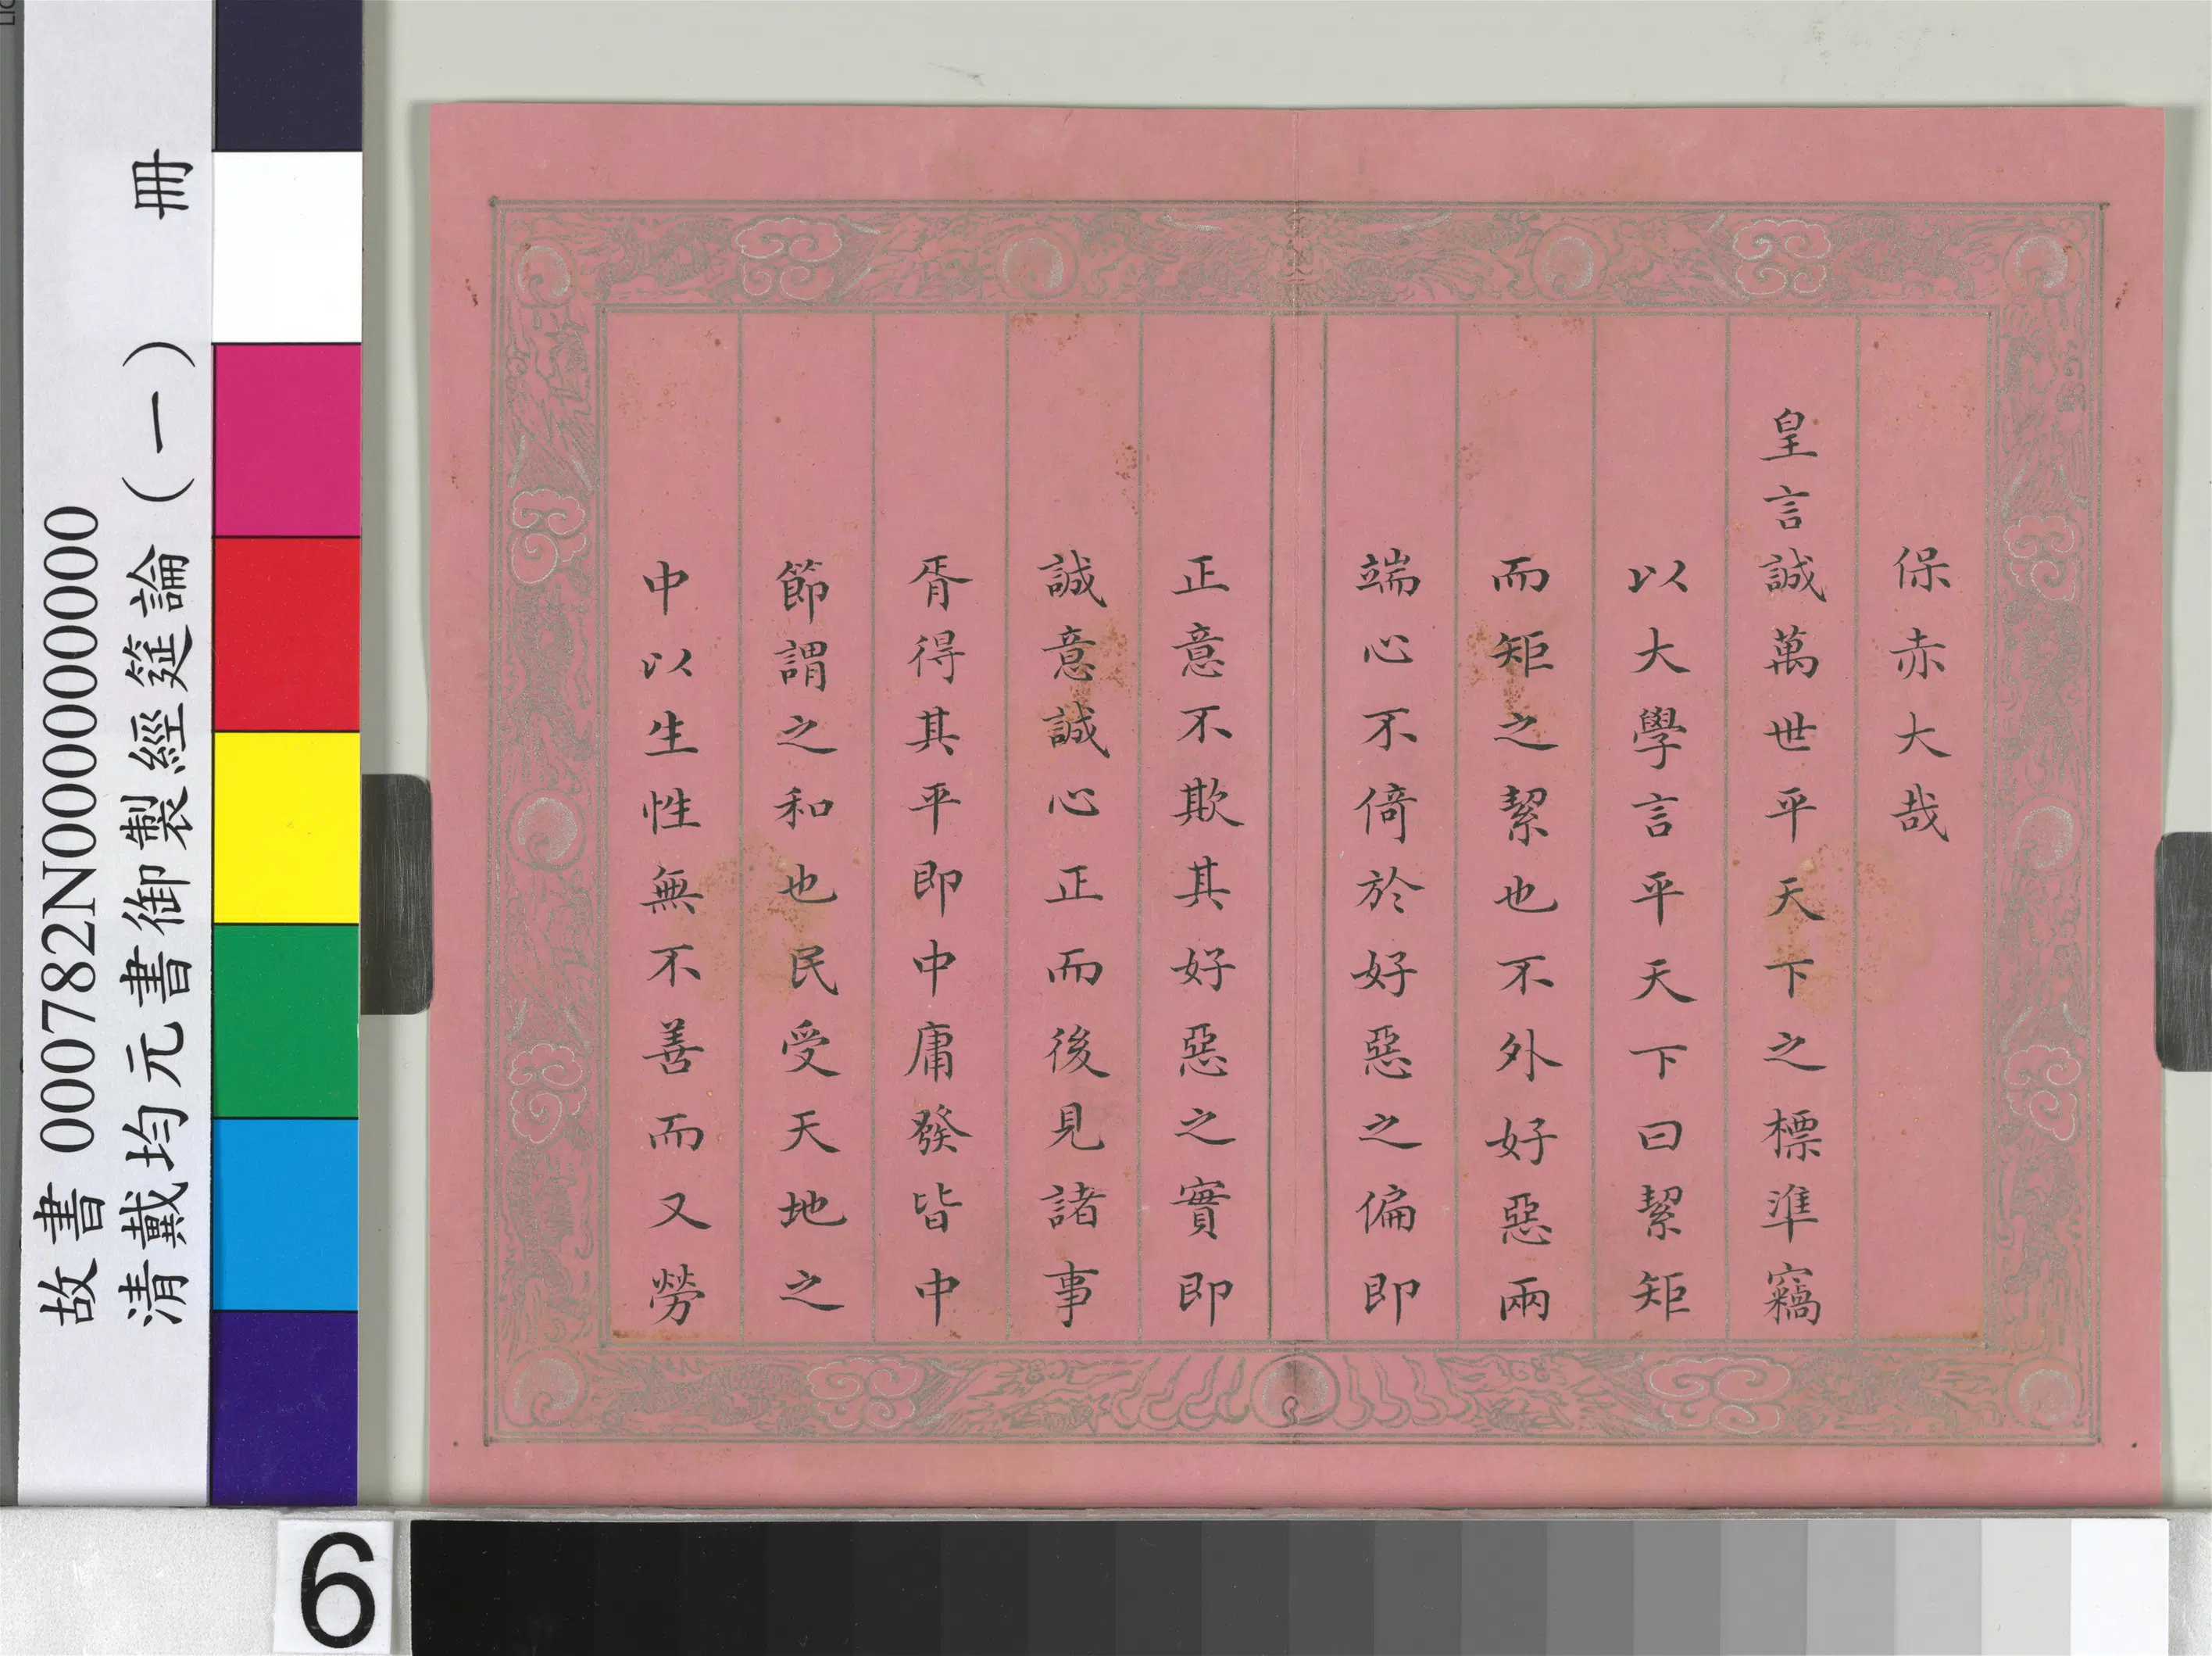 保赤大哉
皇言誠萬世平天下之標準竊
以大學言平天下曰絜矩
而矩之絜也不外好惡兩
端心不倚於好惡之偏即
正意不欺其好惡之實即
誠意誠心正而後見諸事
胥得其平即中庸發皆中
節謂之和也民受天地之
中以生性無不善而又勞
故書 000782N000000000
清戴均元書御製經筵論(一) 冊
6